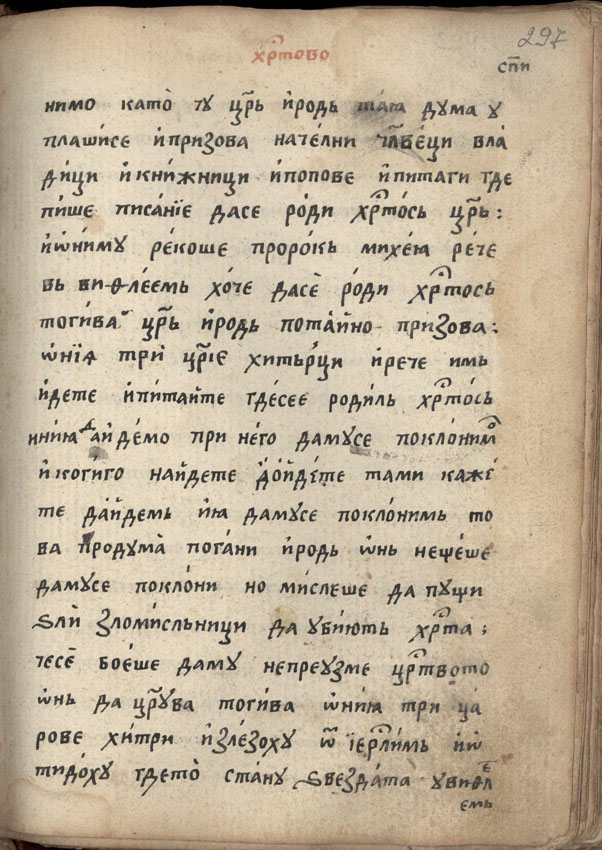 297
хрⷭ҇тово
спⷭ҇и
нимо като̀ ту цр҃ь и҆родь таѧ дума у
плаши́се и҆призова наче́лни чл҃ве́ци вла́
ди́ци и҆кни́жници и҆попове и҆питаги где
пи́ше писа́нїе дасе ро́ди хрⷭ҇то́сь цр҃ь:
и҆ѡ҆ниму ре́коше пророкь михе́ꙗ ре́че
вь виѳле́емь хо́че дасѐ ро́ди хрⷭ҇тось
тоги́ва цр҃ь и҆родь пота́йно призова:
ѡ҆нїѧ трѝ цр҃їе хитьрци и҆рече имь
и҆дете и҆пита́йте где́сее роди́ль хрⷭ҇то́сь
инїю да и҆де́мо при не́го дамусе покло́ним
и҆коги́го найдете до́йде́те тами каже́
те да́йдемь и҆ꙗ дамусе покло́нимь то
ва продума̀ пога́ни и҆родь ѡ҆нь неще́ше
дамусе покло́ни но ми́слеше да пущи
ѕлѝ зломи́сльници да уби́ють хрⷭ҇та:
чесѐ бое́ше даму непреузме црⷭ҇твото
ѡ҆нь да цр҃ува тоги́ва ѡ҆нїꙗ три ца
рове хи́три и҆зле́зоху ѿ і҆ерⷭ҇ли́мь и҆ѿ
тидо́ху гдето̀ ста́ну ѕвезда́та увиѳле
емь